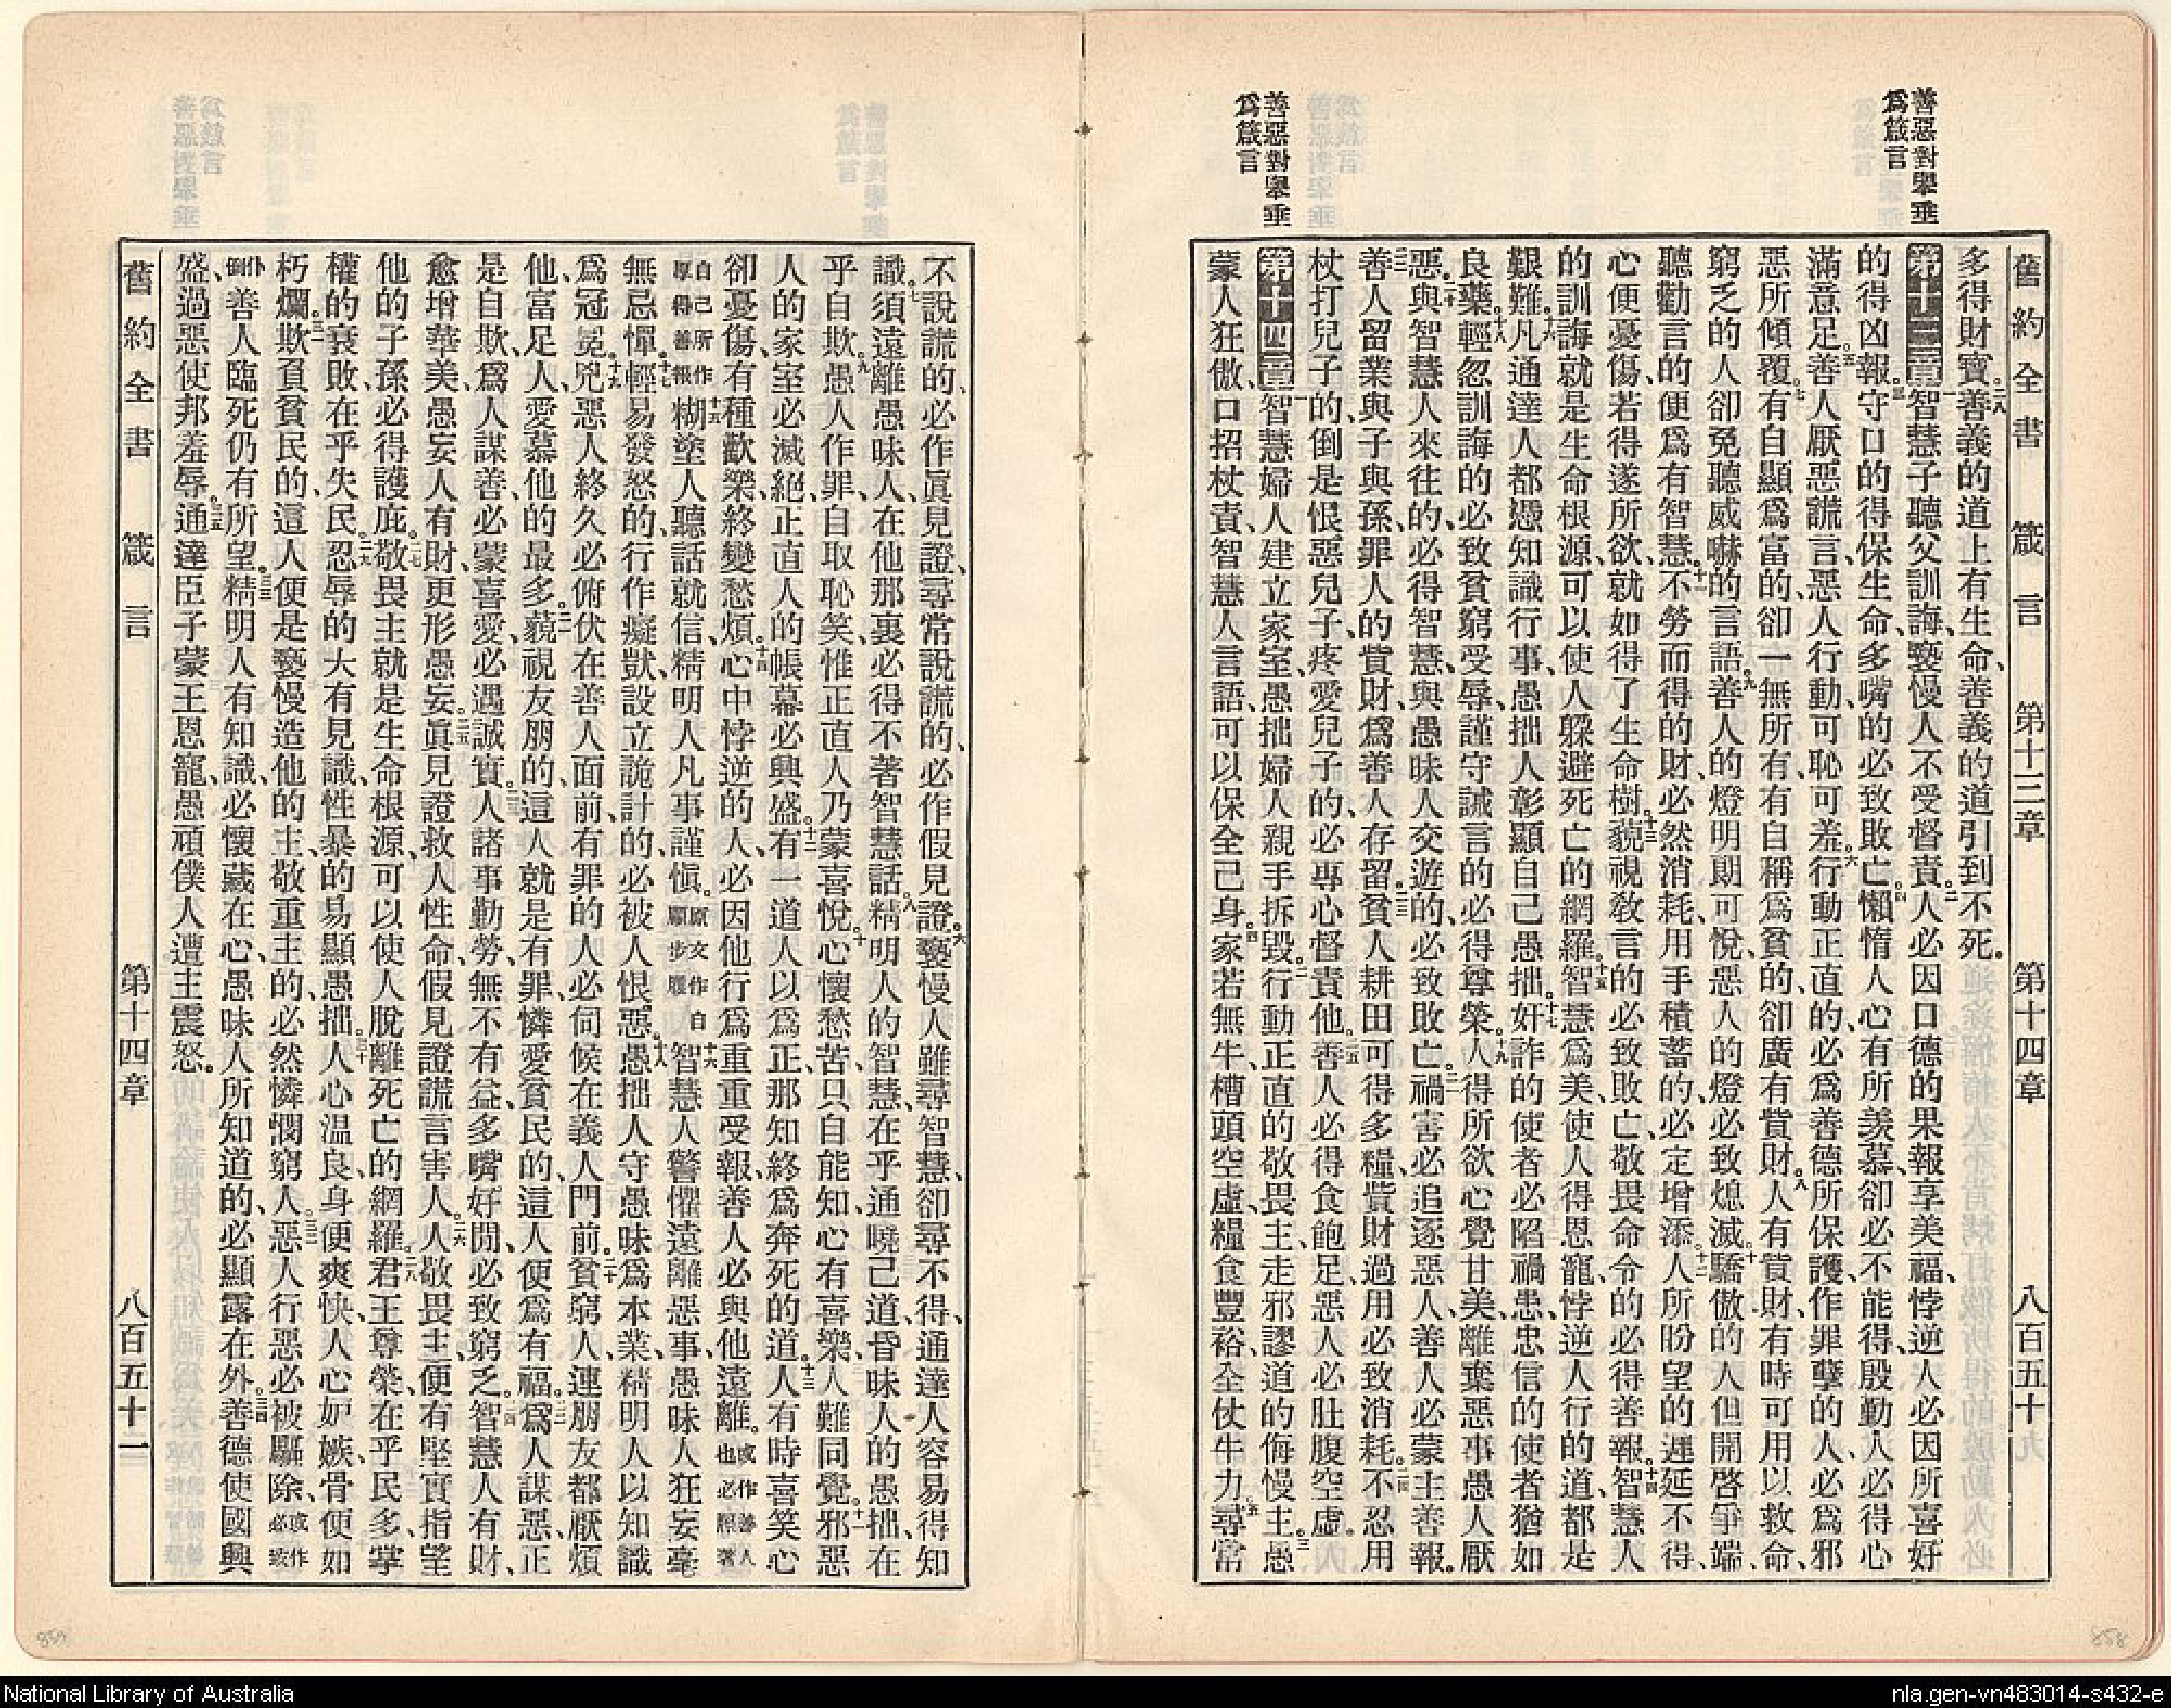 善惡對舉垂
爲箴言
善惡對舉垂
爲箴言
舊約全書 箴言 第十三章 第十四章 八百五十九
多得財寶。二八善義的道上有生命、善義的道引到不死。
第十三章一智慧子聽父訓誨、褻慢人不受督責。二人必因口德的果報享美福、悖逆人必因所喜好
的得凶報。三守口的得保生命、多嘴的必致敗亡。四懶惰人心有所羨慕、卻必不能得、殷勤人必得心
滿意足。五善人厭惡謊言、惡人行動、可恥可羞。六行動正直的、必爲善德所保護、作罪孽的人、必爲邪
惡所傾覆。七有自顯爲富的、卻一無所有、有自稱爲貧的、卻廣有貲財。八人有貲財、有時可用以救命、
窮乏的人卻免聽威嚇的言語。九善人的燈明朗可悅、惡人的燈必致熄滅。十驕傲的人但開啓爭端、
聽勸言的便爲有智慧。十一不勞而得的財、必然消耗、用手積蓄的、必定增添。十二人所盼望的遲延不得、
心便憂傷、若得遂所欲、就如得了生命樹。十三藐視敎言的必致敗亡、敬畏命令的必得善報。十四智慧人
的訓誨就是生命根源、可以使人躱避死亡的網羅。十五智慧爲美、使人得恩寵、悖逆人行的道、都是
艱難。十六凡通達人都憑知識行事、愚拙人彰顯自己愚拙。十七奸詐的使者必陷禍患、忠信的使者猶如
良藥。十八輕忽訓誨的、必致貧窮受辱、謹守誡言的必得尊榮。十九人得所欲心覺甘美、離棄惡事愚人厭
惡。二十與智慧人來往的、必得智慧、與愚昧人交遊的、必致敗亡。二一禍害必追逐惡人、善人必蒙主善報。
二二善人留業與子與孫、罪人的貲財、爲善人存留。二三貧人耕田可得多糧、貲財過用必致消耗。二四不忍用
杖打兒子的、倒是恨惡兒子、疼愛兒子的、必專心督責他。二五善人必得食飽足、惡人必肚腹空虛。
第十四章一智慧婦人建立家室、愚拙婦人親手拆毀。二行動正直的敬畏主、走邪謬道的侮慢主。三愚
蒙人狂傲、口招杖責、智慧人言語、可以保全己身。四家若無牛、槽頭空虛、糧食豐裕、全仗牛力。五尋常
不說謊的、必作眞見證、尋常說謊的、必作假見證。六褻慢人雖尋智慧、卻尋不得、通達人容易得知
識。七須遠離愚昧人、在他那裏必得不著智慧話。八精明人的智慧、在乎通曉己道、昏昧人的愚拙、在
乎自欺。九愚人作罪、自取恥笑、惟正直人乃蒙喜悅。十心懷愁苦、只自能知、心有喜樂、人難同覺。十一邪惡
人的家室必滅絕、正直人的帳幕必興盛。十二有一道人以爲正、那知終爲奔死的道。十三人有時喜笑、心
卻憂傷、有種歡樂、終變愁煩。十四心中悖逆的人、必因他行爲重重受報、善人必與他遠離。或作善人也必歸著
自己所作厚得善報十五糊塗人聽話就信、精明人凡事謹愼。原文作自顧步履十六智慧人警懼遠離惡事、愚昧人狂妄毫
無忌憚。十七輕易發怒的、行作癡獃、設立詭計的、必被人恨惡。十八愚拙人守愚昧爲本業、精明人以知識
爲冠冕。十九兇惡人終久必俯伏在善人面前、有罪的人必伺候在義人門前。二十貧窮人、連朋友都厭煩
他、富足人、愛慕他的最多。二一藐視友朋的、這人就是有罪、憐愛貧民的、這人便爲有福。二二爲人謀惡、正
是自欺、爲人謀善、必蒙喜愛、必遇誠實。二三人諸事勤勞、無不有益、多嘴好閒、必致窮乏。二四智慧人有財、
愈增華美、愚妄人有財、更形愚妄。二五眞見證救人性命、假見證謊言害人。二六人敬畏主、便有堅實指望、
他的子孫必得護庇。二七敬畏主就是生命根源、可以使人脫離死亡的網羅。二八君王尊榮、在乎民多、掌
權的衰敗、在乎失民。二九忍辱的大有見識、性暴的易顯愚拙。三十人心溫良、身便爽快、人心妒嫉、骨便如
朽爛。三一欺負貧民的、這人便是褻慢造他的主、敬重主的、必然憐憫窮人。三二惡人行惡必被驅除、或作必致
仆倒善人臨死仍有所望。三三精明人有知識、必懷藏在心、愚昧人所知道的、必顯露在外。三四善德使國興
盛、過惡使邦羞辱。三五通達臣子蒙王恩寵、愚頑僕人遭主震怒。
舊約全書 箴言 第十四章 八百五十一
859
858
National Library of Australia
nla.gen-vn483014-s432-e